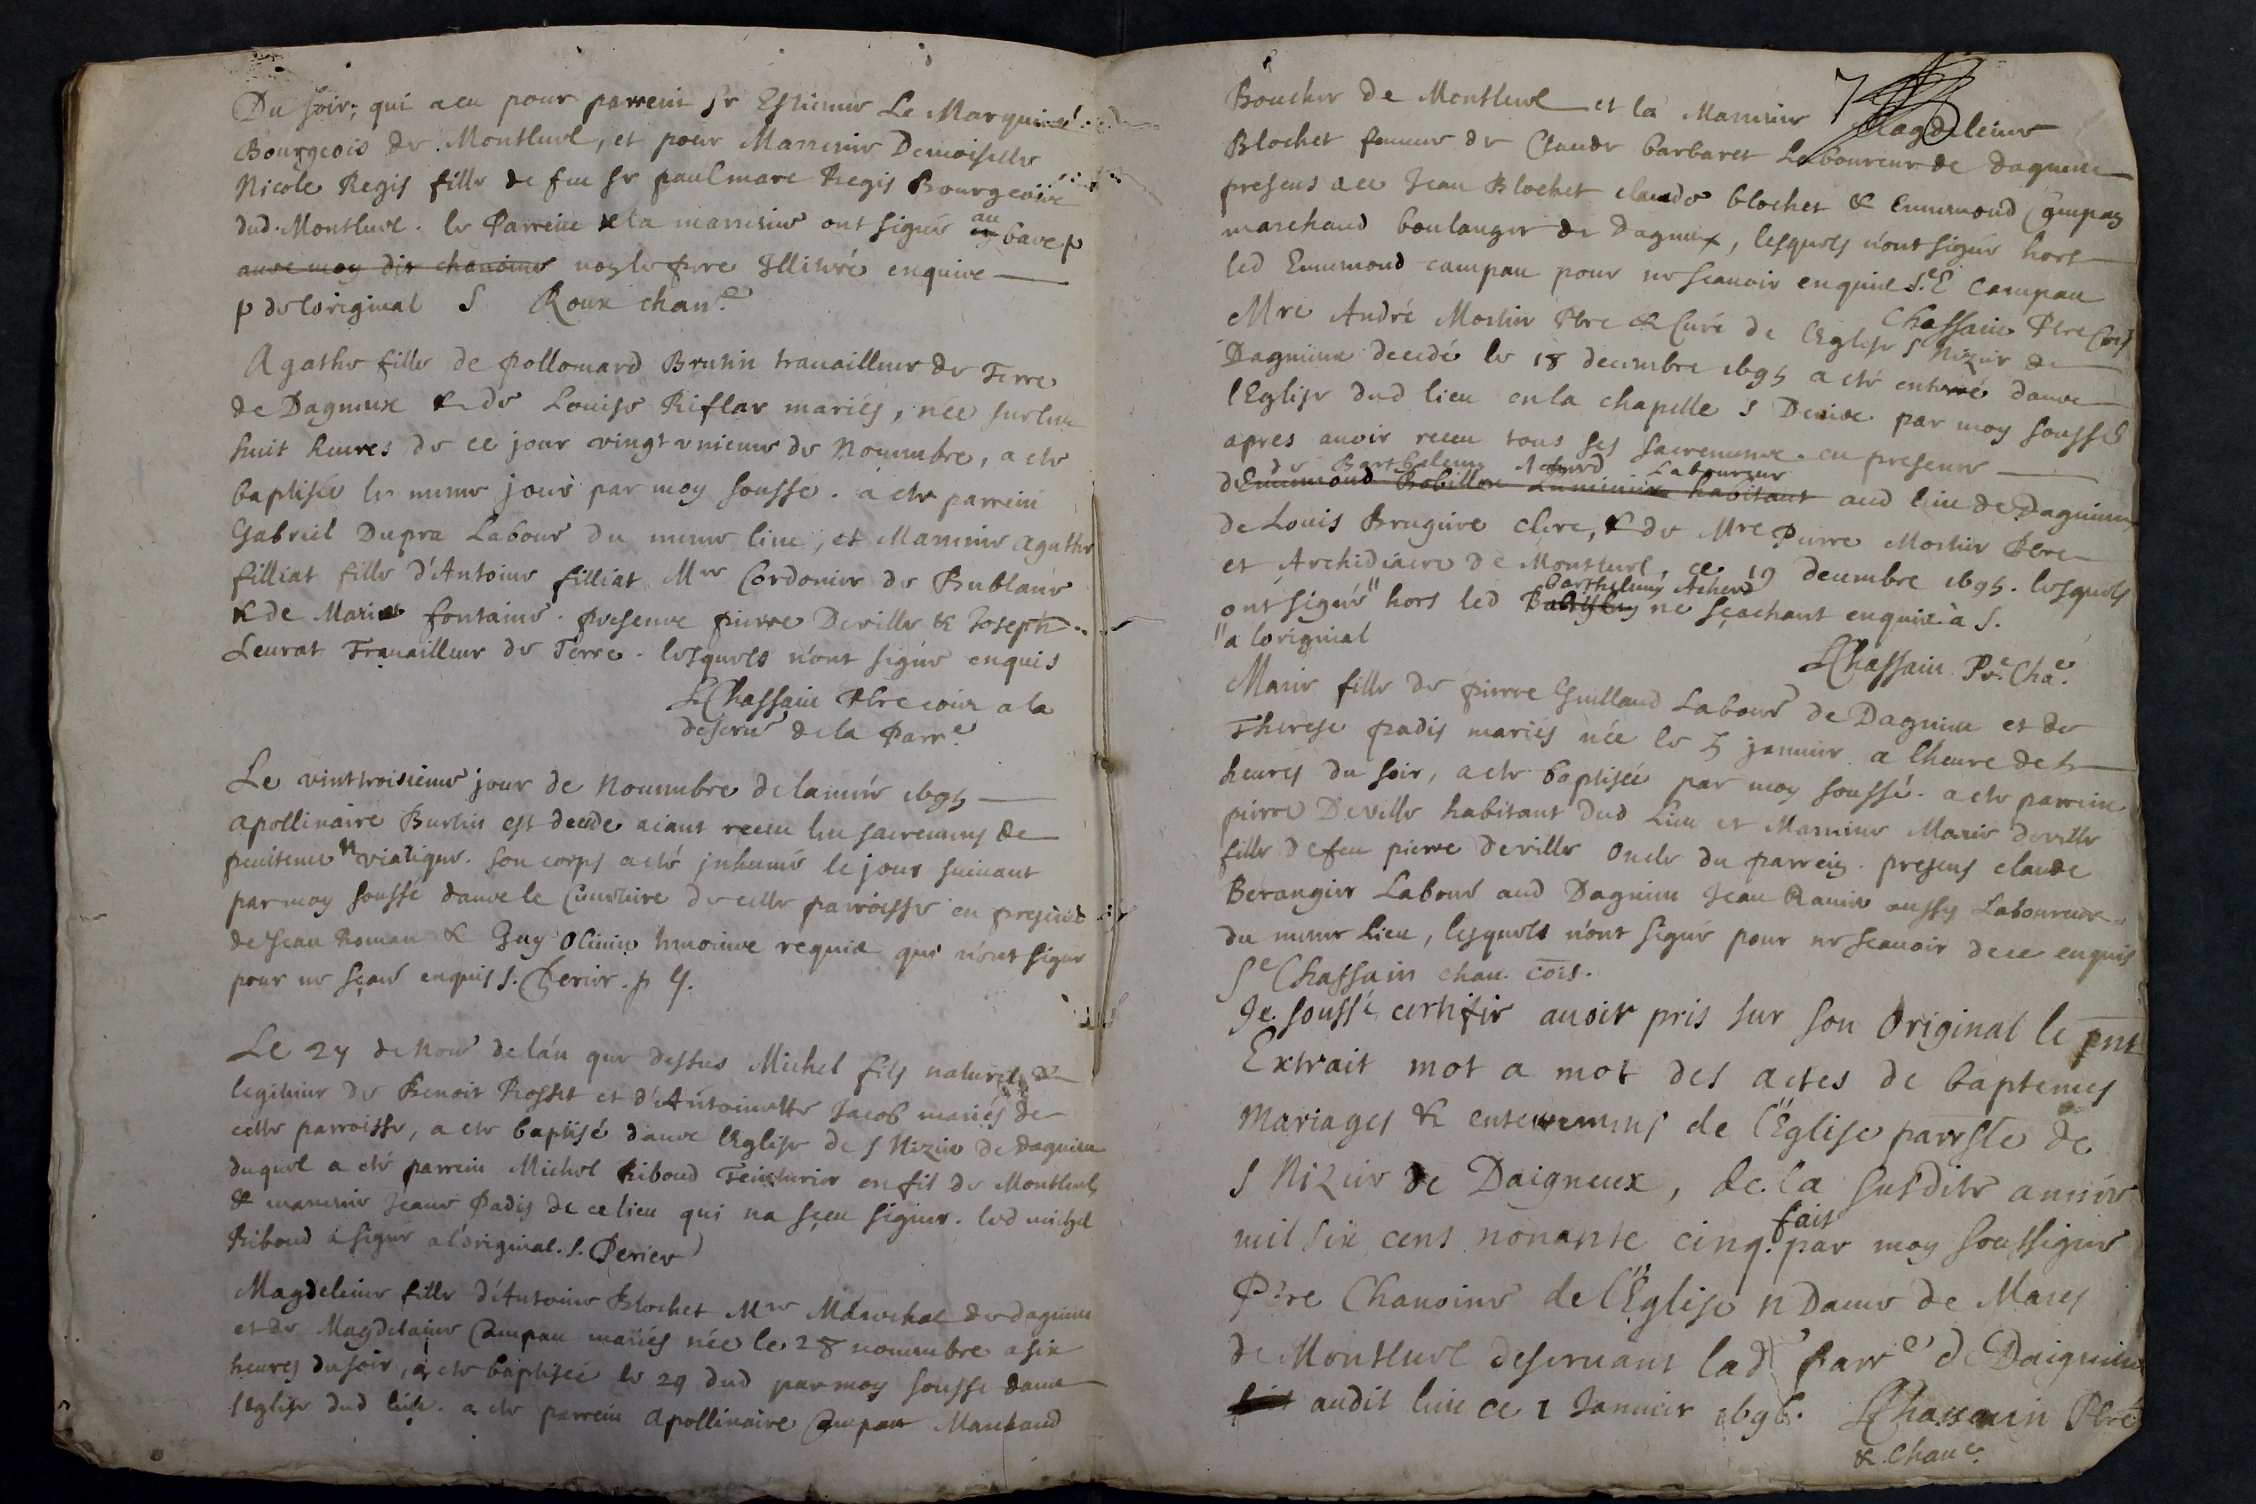 Du soir; qui a eu pour parrein Sr Estienne Le Marquis
Bourgeois de Montluel, et pour Marreine Demoiselle
Nicole Regis fille de feu Sr paul marc Regis Bourgeois
dud. Montluel. le Parrein & la marreine ont signé au
avec moy dit chanoine le pere Illitéré enquive
p de loriginal S Roux chan.e
Agathe fille de pollonard Brutin travailleur de Terre
de Dagnieux & de Louise Riflar mariés, née sur les
huit heures de ce jour vingt unieme de Novembre, a eté
baptisée le meme jour par moy soussé. a eté parrein
Gabriel Dupra Labour du meme lieu, et Marreine Agathe
filliat fille d'Antoine filliat Mre Cordonier de Bublane
& de Marie fontaine. presence pierre Deville & Joseph
Leurat Travailleur de Terre. lesquels n'ont signé enquis
Chassain Pbre coi a la
deserve de la Parr.e
Le vinttroisieme jour de Novembre de lannée 1695
apollinaire Burtin est decedé aiant receu les sacremens de
penitence viatique. son corps a eté inhumé le jour suivant
par moy soussé dans le Cimetiere de cette parroisse en presence
de Jean Roman & Guy Olinin temoins requis qui n'ont signé
pour ne sçavr enquis S. Perier. p
Le 27 de Nove de lan que dessus Michel fils naturel &
legitime de Benoit Rosset et d'Antoinette Jacob mariés de
cette parroisse, a eté baptisé dans lEglise de S Nizier de Dagnieu
duquel a eté parrein Michel Riboud Teinturier en fil de Montluel
& marreine Jeane Padis de ce lieu qui na sçeu signer. led michel
Riboud a signé a l'original. S. Perier
Magdeleine fille d'Antoine Blochet Mre Marechal de dagnieu
et de Magdelaine Campan mariés née le 28 novembre a six
heures du soir, a eté baptisée le 29 dud par moy soussé dans
lEglise dud lieu. a eté parrein Apollinaire Campan Marchand
7
Boucher de Montluel et la Marreine Magdeleine
Blochet femme de Claude barbaret Laboureur de dagnieu
presens a ce Jean Blochet claude blochet & Ennemond Campan
marchand boulanger de Dagnieux, lesquels n'ont signé hors
led Ennemond campan pour ne scavoir enquis S.é E Campan
Chassain Pbre
Mre André Mortier Pbre & Curé de lEglise S Nizier de
Dagnieux decedé le 18 decembre 1695 a eté enterré dans
lEglise dud lieu en la chapelle S Denise par moy soussé
apres avoir receu tous ses sacremens. en presence
de Barthelemy Acherd Laboureur
d'Ennemond Robillon Luminier habitant aud lieu de Dagnieux
de Louis Bruguire clerc, & de Mre Pierre Mortier Pbre
et Archidiacre de Montluel, ce 19 decembre 1695. lesquels
barthelemy Acherd
ont signé " hors led ne sçachant enquis. a S.
" a loriginal
Chassain Pr.e Cha.e
Marie fille de pierre Guilland Labour de Dagnieu et de
Therese padis mariés née le 5 janvier a lheure de 5
heures du soir, a eté baptisée par moy soussé. a eté parrein
pierre Deville habitant dud Lieu et Marreine Marie deville
fille de feu pierre deville Oncle du parrein. presens claude
Berangier Labour aud Dagnieu Jean Ranin aussy Laboureur
du meme Lieu, lesquels n'ont signé pour ne scavoir de ce enquis
Se Chassain chan. cois.
Je soussé certifie avoir pris sur son Original le pnt
Extrait mot a mot des actes de baptemes
Mariages & enterremens de l'Eglise parrsle de
S Nizier de Daigneux, de la susdite année
mil six cens nonante cinq. fait par moy soussigné
Pbre Chanoine de l'Eglise N Dame de Mares
de Montluel deservant lad Parr.e de Daignieu
audit lieu ce 1 Janvier 1696. Chassain Pbre
& Chan.e